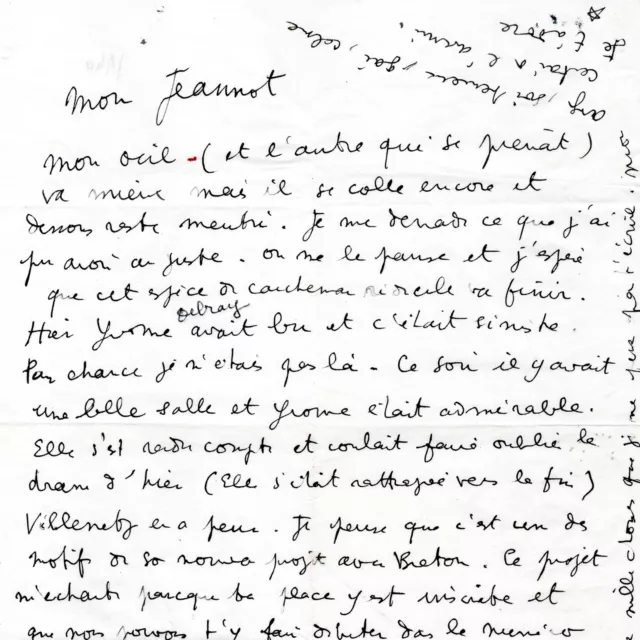 Mon Jeannot
Mon œil - (et l'autre qui se prenat)
va mieux mais il se colle encore et
dessous reste meutri. Je me demade ce que j'ai
pu avoir au juste. On me le panse et j'espère
que cet espèce de cauchemar ridicule va finir.
Hier Yvonne debray avait bu et c'était sinistre.
Par chance je n'étais pas là. Ce soir il y avait
une belle salle et Yvonne était admirable.
Elle s'est rendu compte et voulait faire oublier le
drame d'hier (Elle s'était rattrapée vers la fin)
en a peur. Je pense que c'est un des
motifs de so nouveau projet avec Breton. Ce projet
m'enchante parceque ta place y est inscrite et
que nous pouvons t'y faire débuter dans le
mille choses que je ne peux pas t'écrire. mon
soir, gai, calme
certain de l'avenir,
Je t'adore